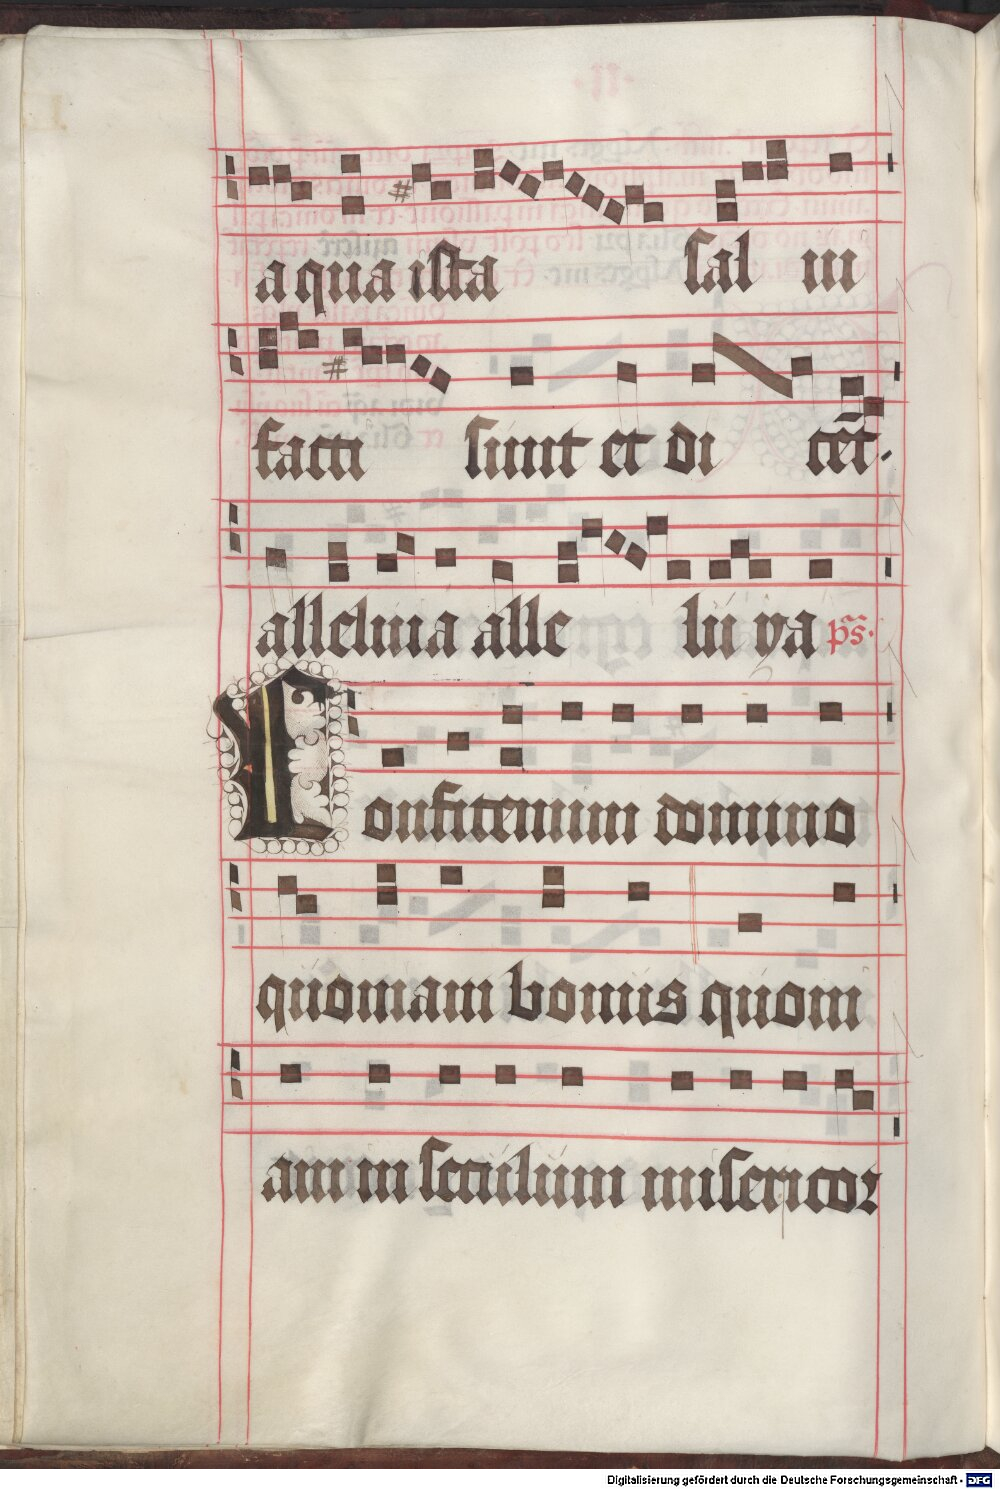 aqua ista sal ui
facti sunt et di cēt.
alleluia alle lu ya ps̄.
Confitemini domino
quoniam bonus quoni
am in seculum misericor
Digitalisierung gefördert durch die Deutsche Forschungsgemeinschaft - DFG